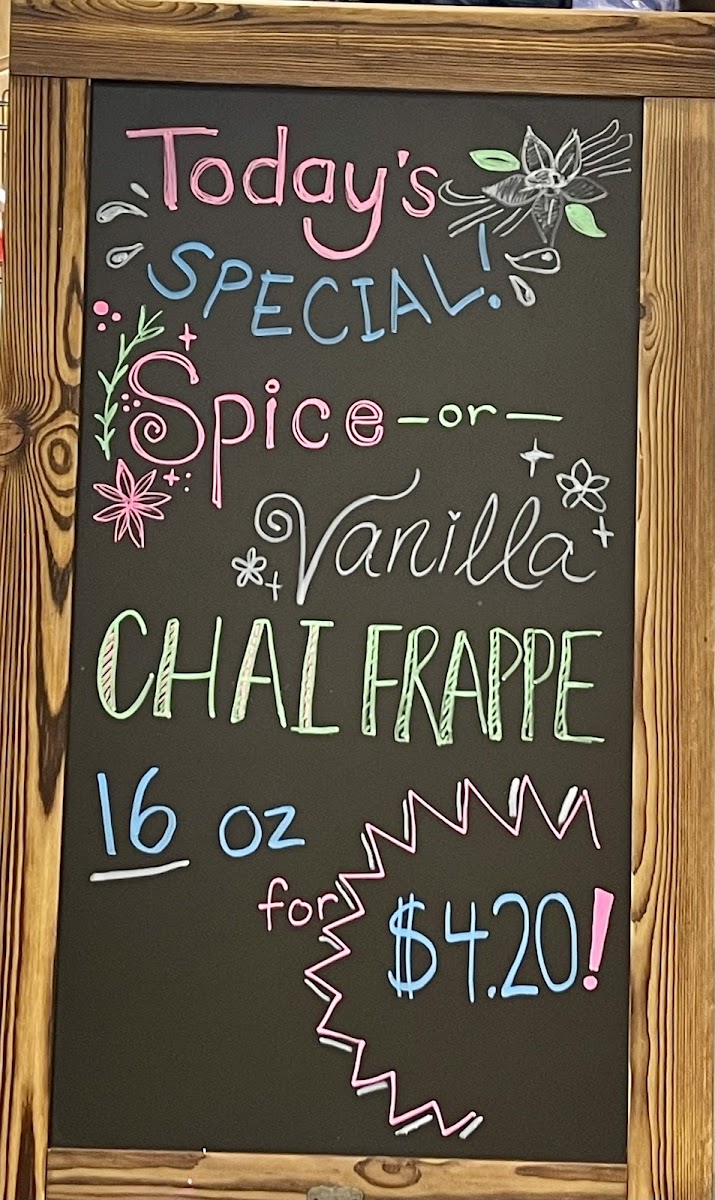 Today's
SPECIAL!
Spice -or-
Vanilla
CHAI FRAPPE
16 oz
for $4.20!